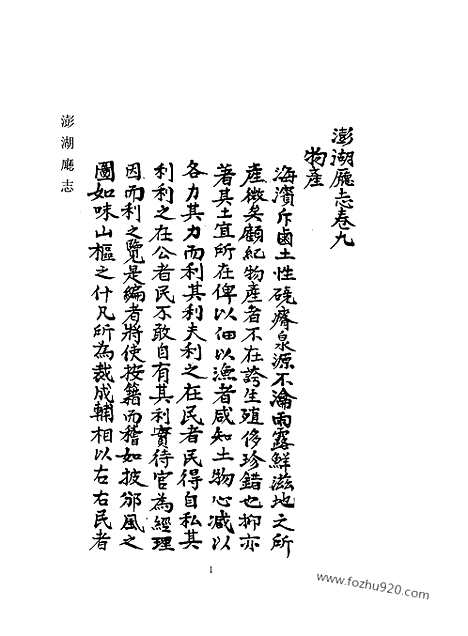 澎湖廳志卷九
物產
海濱斥鹵土性磽瘠泉源不瀹雨露鮮滋地之所
產微矣顧紀物產者不在誇生殖侈珍錯也抑亦
著其土宜所在俾以佃以漁者咸知土物心臧以
各力其力而利其利夫利之在民者民得自私其
利利之在公者民不敢自有其利實待官為經理
因而利之覽是編者將使按籍而稽如披邠風之
圖如咏山樞之什凡所為裁成輔相以右右民者
澎湖廳志
1
www.fozhu920.com